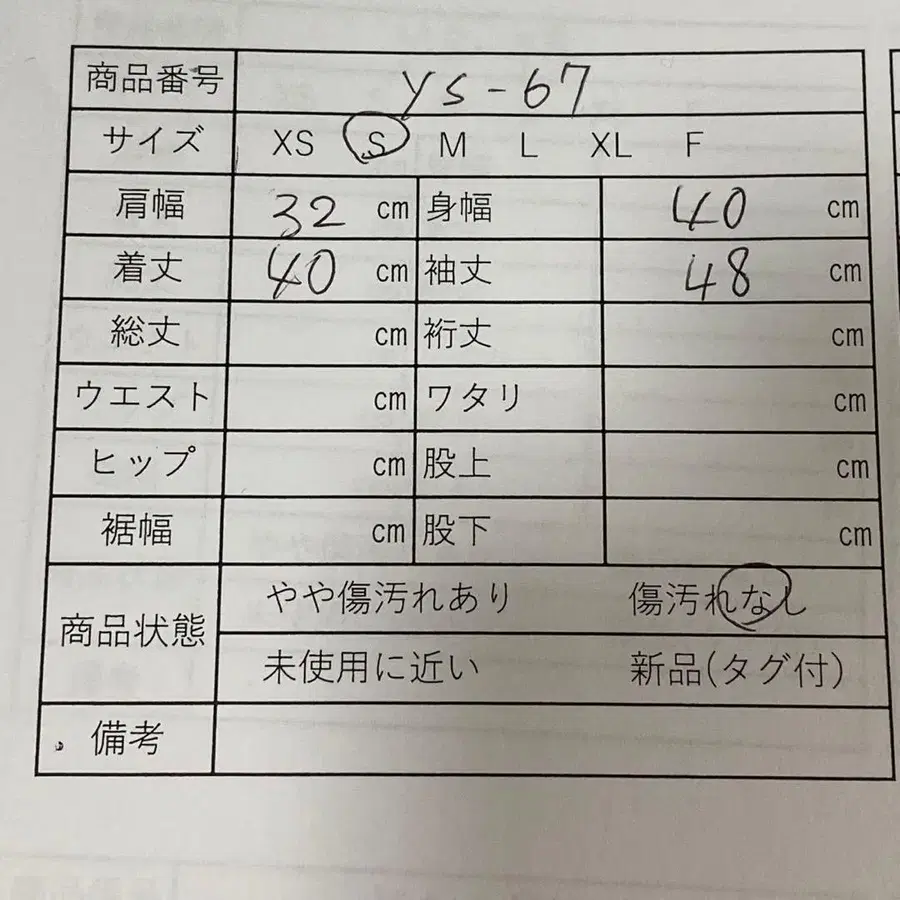 商品番号 ys-67
サイズ XS S M L XL F
肩幅 32 cm 身幅 40 cm
着丈 40 cm 袖丈 48 cm
総丈 cm 裄丈 cm
ウエスト cm ワタリ cm
ヒップ cm 股上 cm
裾幅 cm 股下 cm
商品状態 やや傷汚れあり 傷汚れなし
未使用に近い 新品(タグ付)
備考